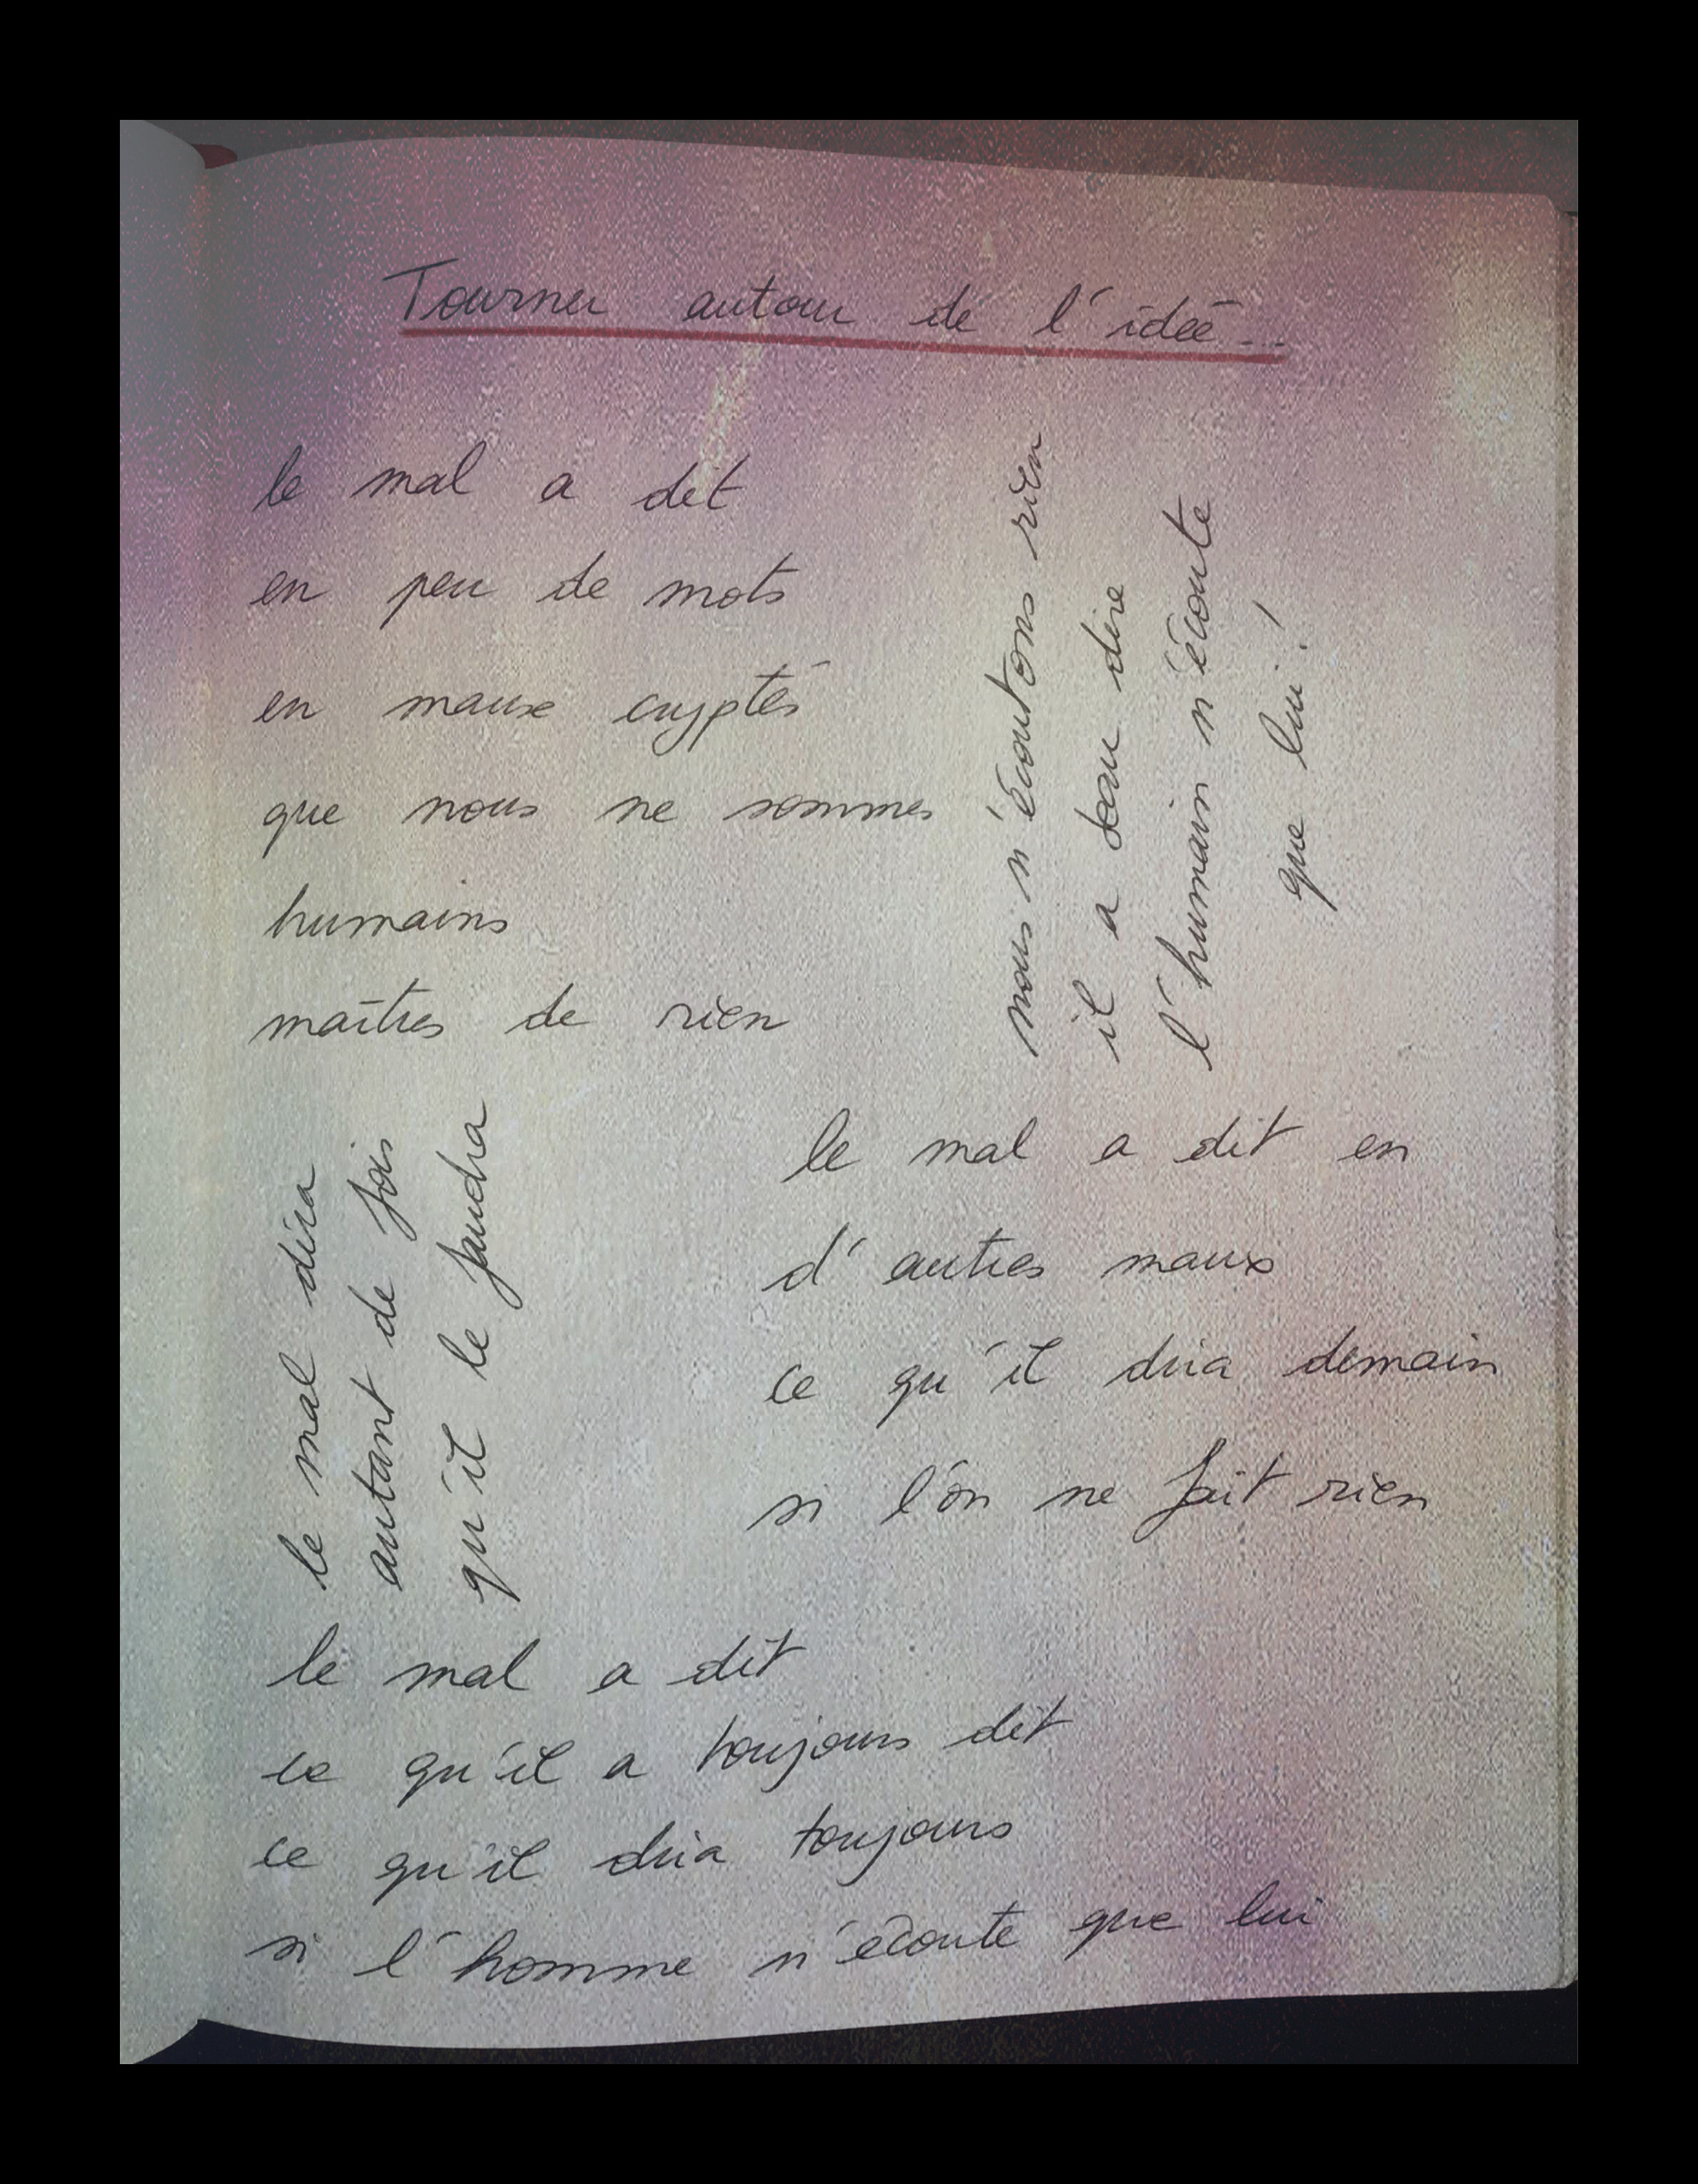 Tourner autour de l'idée...
le mal a dit
en peu de mots
en maux cryptés
que nous ne sommes
humains
maîtres de rien
nous n'écoutons rien
il a beau dire
l'humain n'écoute
que lui !
le mal dira
autant de fois
qu'il le faudra
le mal a dit en
d'autres maux
ce qu'il dira demain
si l'on ne fait rien
le mal a dit
ce qu'il a toujours dit
ce qu'il dira toujours
si l'homme n'écoute que lui